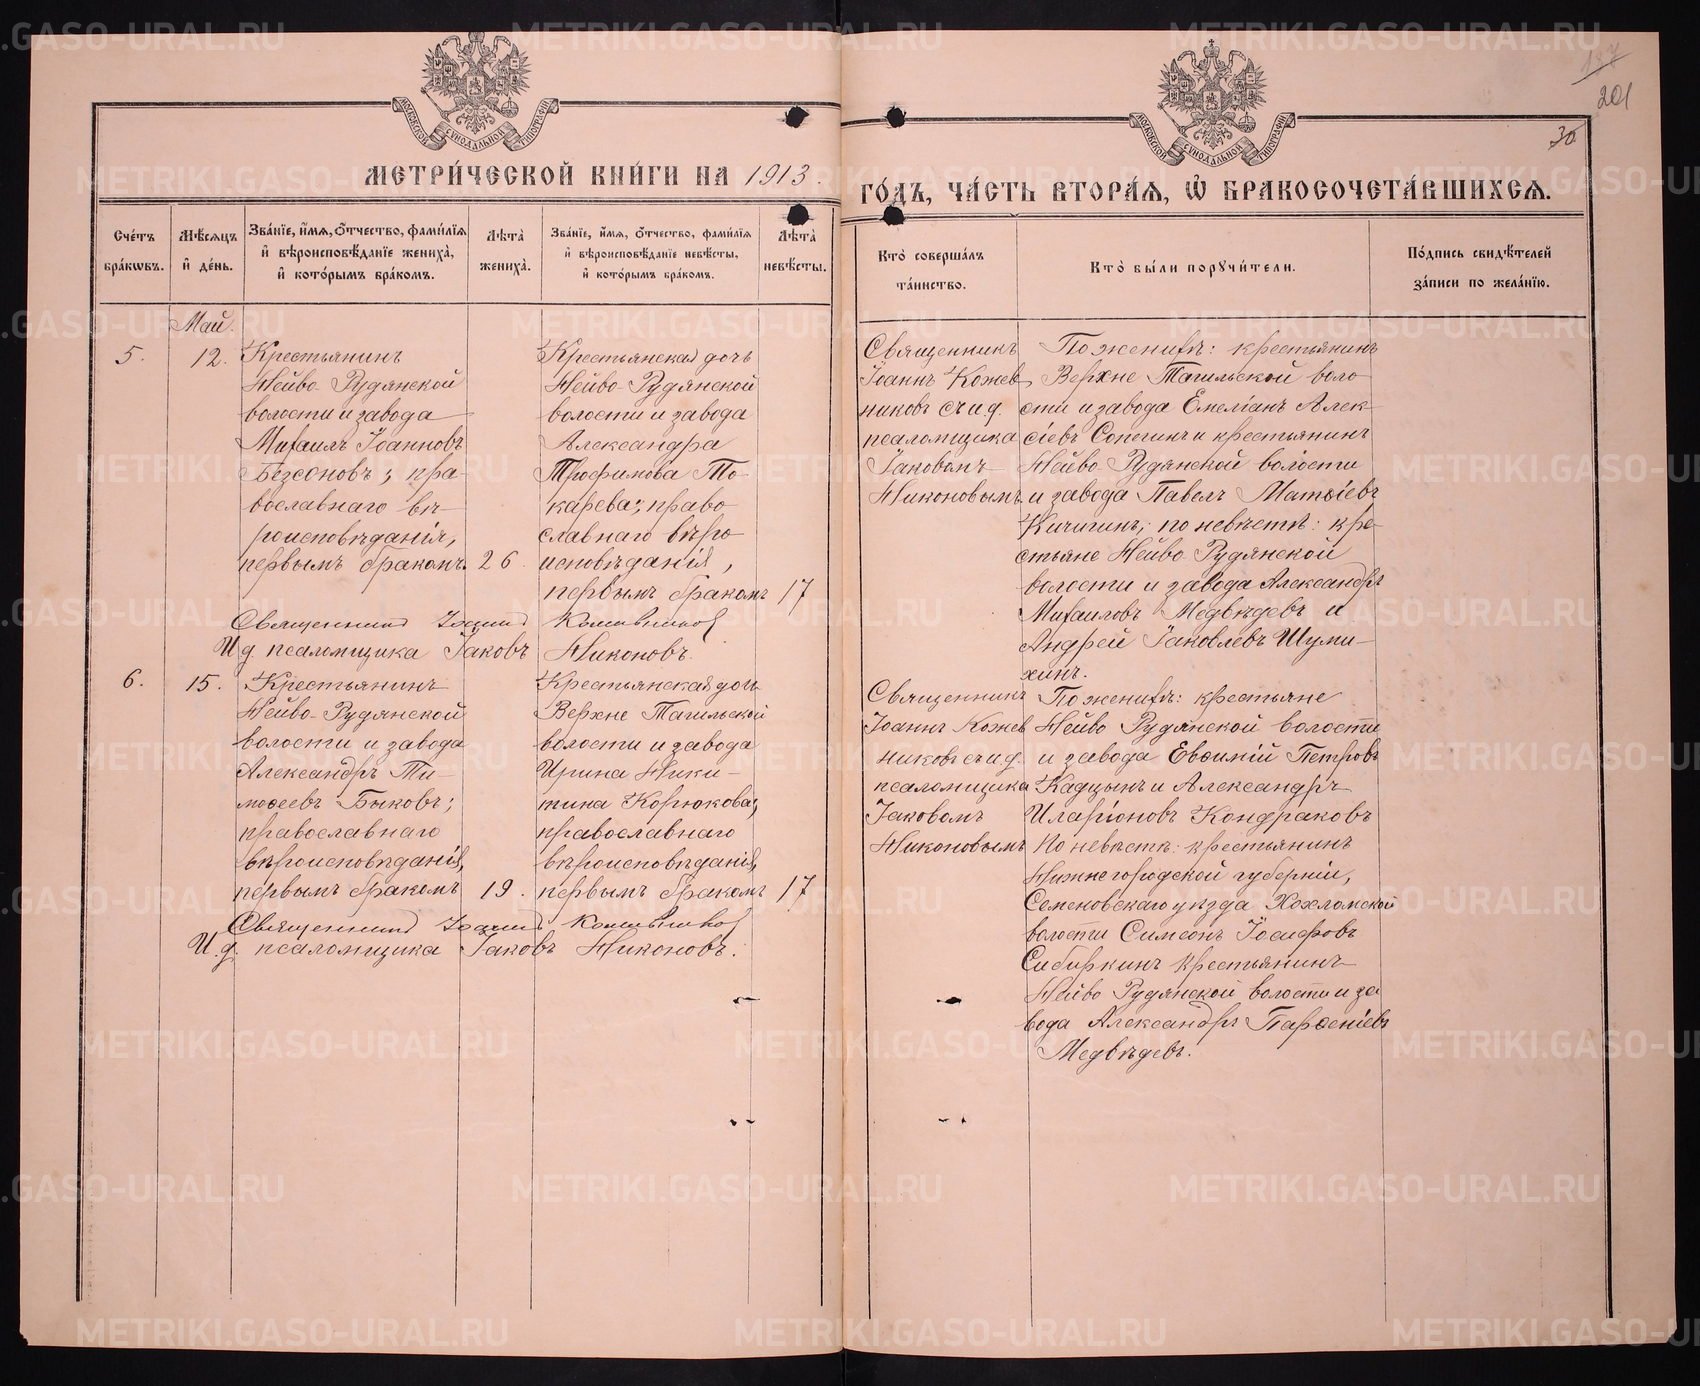 МЕТРИ́ЧЕСКОЙ КНИ́ГИ НА 1913.
ГО́ДЪ, ЧА́СТЬ ВТОРА́Я, Ѽ БРАКОСОЧЕТА́ВШИХСЯ.
МОСКОВСКОЙ СѴНОДАЛЬНОЙ ТИПОГРАФІИ
МОСКОВСКОЙ СѴНОДАЛЬНОЙ ТИПОГРАФІИ
201
30
Сче́тъ бра́кѡвъ.
Мѣ́сяцъ и҆ де́нь.
Зва́нїе, и҆́мя, ѻ҆́тчество, фами́лїя и҆ вѣроисповѣ́данїе жениха̀, и҆ кото́рымъ бра́комъ.
Лѣта̀ жениха̀.
Зва́нїе, и҆́мя, ѻ҆́тчество, фами́лїя и҆ вѣроисповѣ́данїе невѣ́сты, и҆ кото́рымъ бра́комъ.
Лѣта̀ невѣ́сты.
Кто̀ соверша́лъ та́инство.
Кто̀ бы́ли порꙋчи́тели.
По́дпись свидѣ́телей за́писи по жела́нїю.
Май.
5.
12.
Крестьянинъ
Нейво-Рудянской
волости и завода
Михаилъ Іоанновъ
Безсоновъ; пра-
вославнаго вѣ-
роисповѣданія,
первымъ бракомъ.
26
Крестьянская дочь
Нейво-Рудянской
волости и завода
Александра
Трофимова То-
карева; право
славнаго вѣро
исповѣданія,
первымъ бракомъ
17
Священникъ
Іоаннъ Кожев
никовъ съ и.д.
псаломщика
Іаковомъ
Никоновымъ
По женихѣ: крестьянинъ
Верхне Тагильской воло
сти и завода Емеліанъ Алек-
сіевъ Сопегинъ и крестьянинъ
Нейво Рудянской волости
и завода Павелъ Матѳіевъ
Кичигинъ; по невѣстѣ: кре-
стьяне Нейво Рудянской
волости и завода Александръ
Михаиловъ Медвѣдевъ и
Андрей Іаковлевъ Шуми-
хинъ.
Священникъ Іоаннъ Кожевниковъ
И д псаломщика Іаковъ Никоновъ.
6.
15.
Крестьянинъ
Нейво-Рудянской
волости и завода
Александръ Ти-
моѳеевъ Быковъ;
православнаго
вѣроисповѣданія,
первымъ бракомъ
19.
Крестьянская дочь
Верхне Тагильской
волости и завода
Ирина Ники-
тина Корюкова;
православнаго
вѣроисповѣданія,
первымъ бракомъ
17
Священникъ
Іоаннъ Кожев
никовъ съ и д.
псаломщика
Іаковомъ
Никоновымъ
По женихѣ: крестьяне
Нейво Рудянской волости
и завода Евѳимій Петровъ
Кадцынъ и Александръ
Иларіоновъ Кондраковъ
По невѣстѣ: крестьянинъ
Нижнегородской губерніи,
Семеновскаго уѣзда Хохломской
волости Симеонъ Іосифовъ
Сибиркинъ крестьянинъ
Нейво Рудянской волости и за
вода Александръ Парѳеніевъ
Медвѣдевъ.
Священникъ Іоаннъ Кожевниковъ
И.д. псаломщика Іаковъ Никоновъ.
METRIKI.GASO-URAL.RU